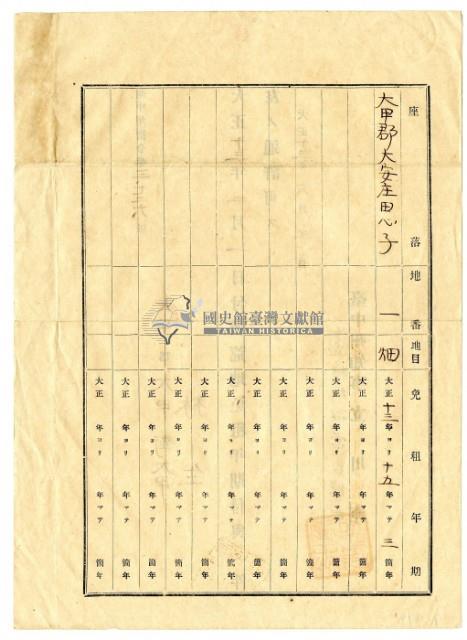 座落 地番 地目 免租年期
大甲郡大安庄田心子 一 畑 大正十三年ヨリ 十五年マテ 三箇年
大正 年ヨリ 年マテ 箇年
大正 年ヨリ 年マテ 箇年
大正 年ヨリ 年マテ 箇年
大正 年ヨリ 年マテ 箇年
大正 年ヨリ 年マテ 箇年
大正 年ヨリ 年マテ 箇年
大正 年ヨリ 年マテ 箇年
大正 年ヨリ 年マテ 箇年
大正 年ヨリ 年マテ 箇年
大正 年ヨリ 年マテ 箇年
大正 年ヨリ 年マテ 箇年
國史館臺灣文獻館
TAIWAN HISTORICA